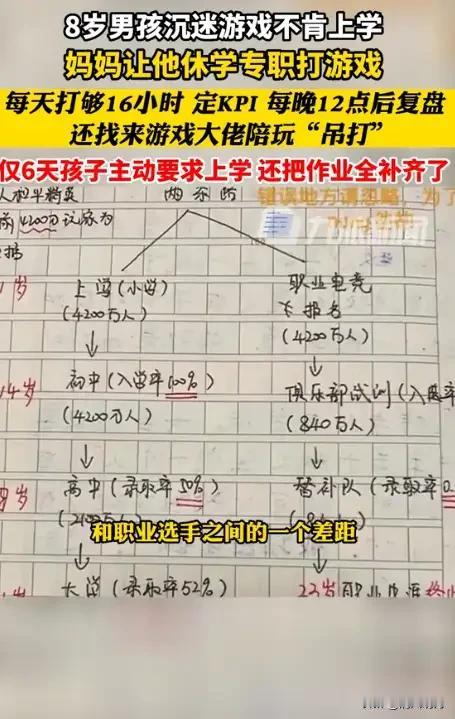 8岁男孩沉迷游戏不肯上学
妈妈让他休学专职打游戏
每天打够16小时 定KPI 每晚12点后复盘
还找来游戏大佬陪玩“吊打”
仅6天孩子主动要求上学 还把作业全补齐了
人和平精英
两条路
错误地方请忽略，为了
4200万玩家为
上学(小学)
(4200万人)
职业电竞
报名
(4200万人)
初中(入学率100%)
(4200万人)
俱乐部试训(入
(840万人)
14岁
高中(录取率50%)
(2100万人)
替补队(录取率0.
和职业选手之间的一个差距
大学(录取率52%)
23岁职业生涯终